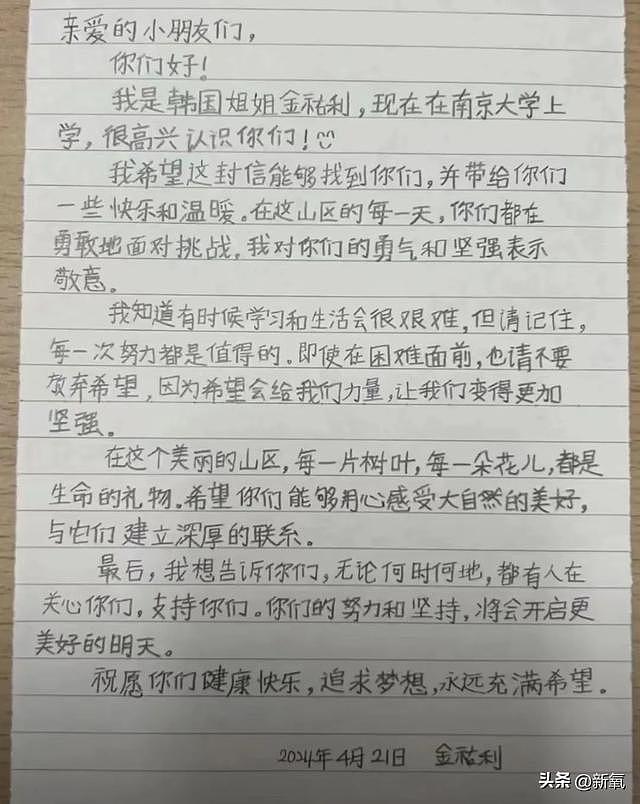 亲爱的小朋友们，
你们好！
我是韩国姐姐金祐利，现在在南京大学上
学，很高兴认识你们！
我希望这封信能够找到你们，并带给你们
一些快乐和温暖。在这山区的每一天，你们都在
勇敢地面对挑战，我对你们的勇气和坚强表示
敬意。
我知道有时候学习和生活会很艰难，但请记住，
每一次努力都是值得的。即使在困难面前，也请不要
放弃希望，因为希望会给我们力量，让我们变得更加
坚强。
在这个美丽的山区，每一片树叶，每一朵花儿，都是
生命的礼物。希望你们能够用心感受大自然的美好，
与它们建立深厚的联系。
最后，我想告诉你们，无论何时何地，都有人在
关心你们，支持你们。你们的努力和坚持，将会开启更
美好的明天。
祝愿你们健康快乐，追求梦想，永远充满希望。
2024年4月21日 金祐利
头条 @新氧